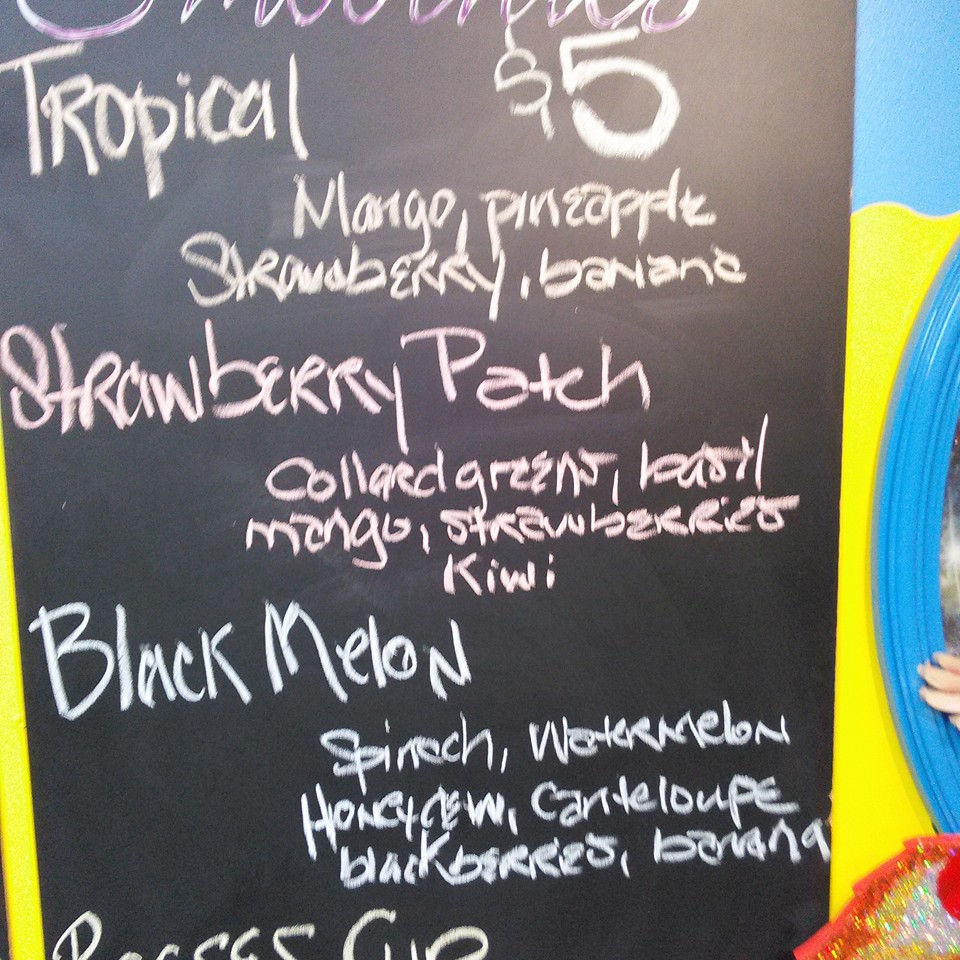 Smoothies
Tropical $5
Mango, pineapple
Strawberry, banana
Strawberry Patch
Collard greens, basil
mango, strawberries
Kiwi
Black Melon
Spinach, Watermelon
Honeydew, Canteloupe
blackberries, banana
Reeses Cup